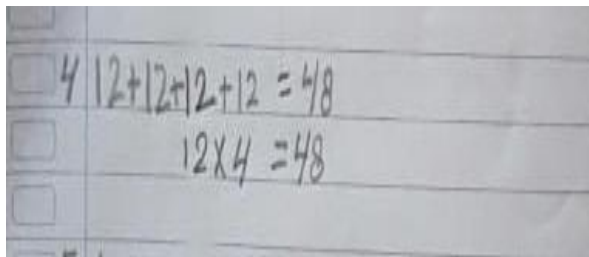 4 12+12+12+12 = 48
12×4 = 48